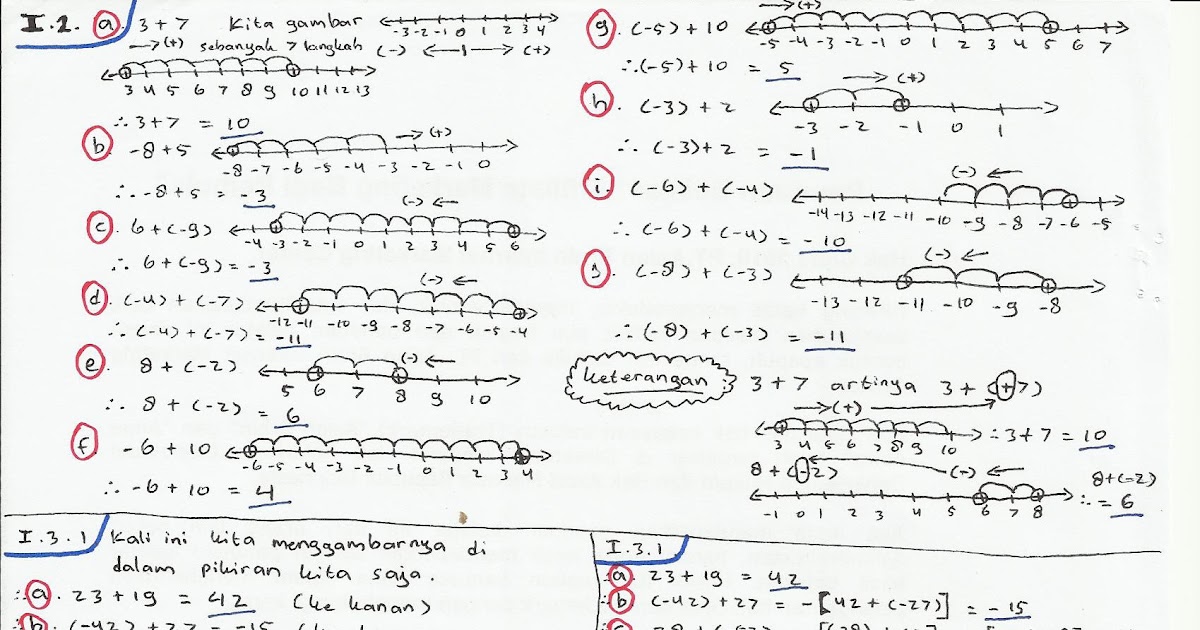 I.2. a. 3+7 Kita gambar
-3 -2 -1 0 1 2 3 4
→(+) sebanyak 7 langkah (-) ← → (+)
3 4 5 6 7 8 9 10 11 12 13
∴ 3+7 = 10
b. -8+5 →(+)
-8 -7 -6 -5 -4 -3 -2 -1 0
∴ -8+5 = -3
c. 6+(-9) (-)←
-4 -3 -2 -1 0 1 2 3 4 5 6
∴ 6+(-9) = -3
d. (-4)+(-7) (-)←
-12 -11 -10 -9 -8 -7 -6 -5 -4
∴ (-4)+(-7) = -11
e. 8+(-2) (-)←
5 6 7 8 9 10
∴ 8+(-2) = 6
f. -6+10
-6 -5 -4 -3 -2 -1 0 1 2 3 4
∴ -6+10 = 4
→(+)
g. (-5)+10
-5 -4 -3 -2 -1 0 1 2 3 4 5 6 7
∴ (-5)+10 = 5
→(+)
h. (-3)+2
-3 -2 -1 0 1
∴ (-3)+2 = -1
(-)←
i. (-6)+(-4)
-14 -13 -12 -11 -10 -9 -8 -7 -6 -5
∴ (-6)+(-4) = -10
(-)←
j. (-8)+(-3)
-13 -12 -11 -10 -9 -8
∴ (-8)+(-3) = -11
keterangan : 3+7 artinya 3+(+7)
→(+)
3 4 5 6 7 8 9 10 ∴ 3+7 = 10
8+(-2) (-)← 8+(-2)
-1 0 1 2 3 4 5 6 7 8 ∴ = 6
I.3.1 Kali ini kita menggambarnya di
dalam pikiran kita saja.
∴ a. 23+19 = 42 (ke kanan)
∴ b. (-42)+27 = -15
I.3.1
∴ a. 23+19 = 42
∴ b. (-42)+27 = -[42+(-27)] = -15